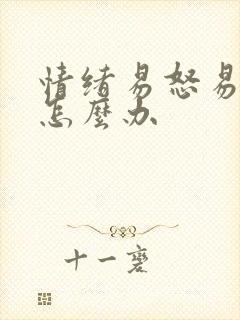 情绪易怒易
怎麽办
十一褒